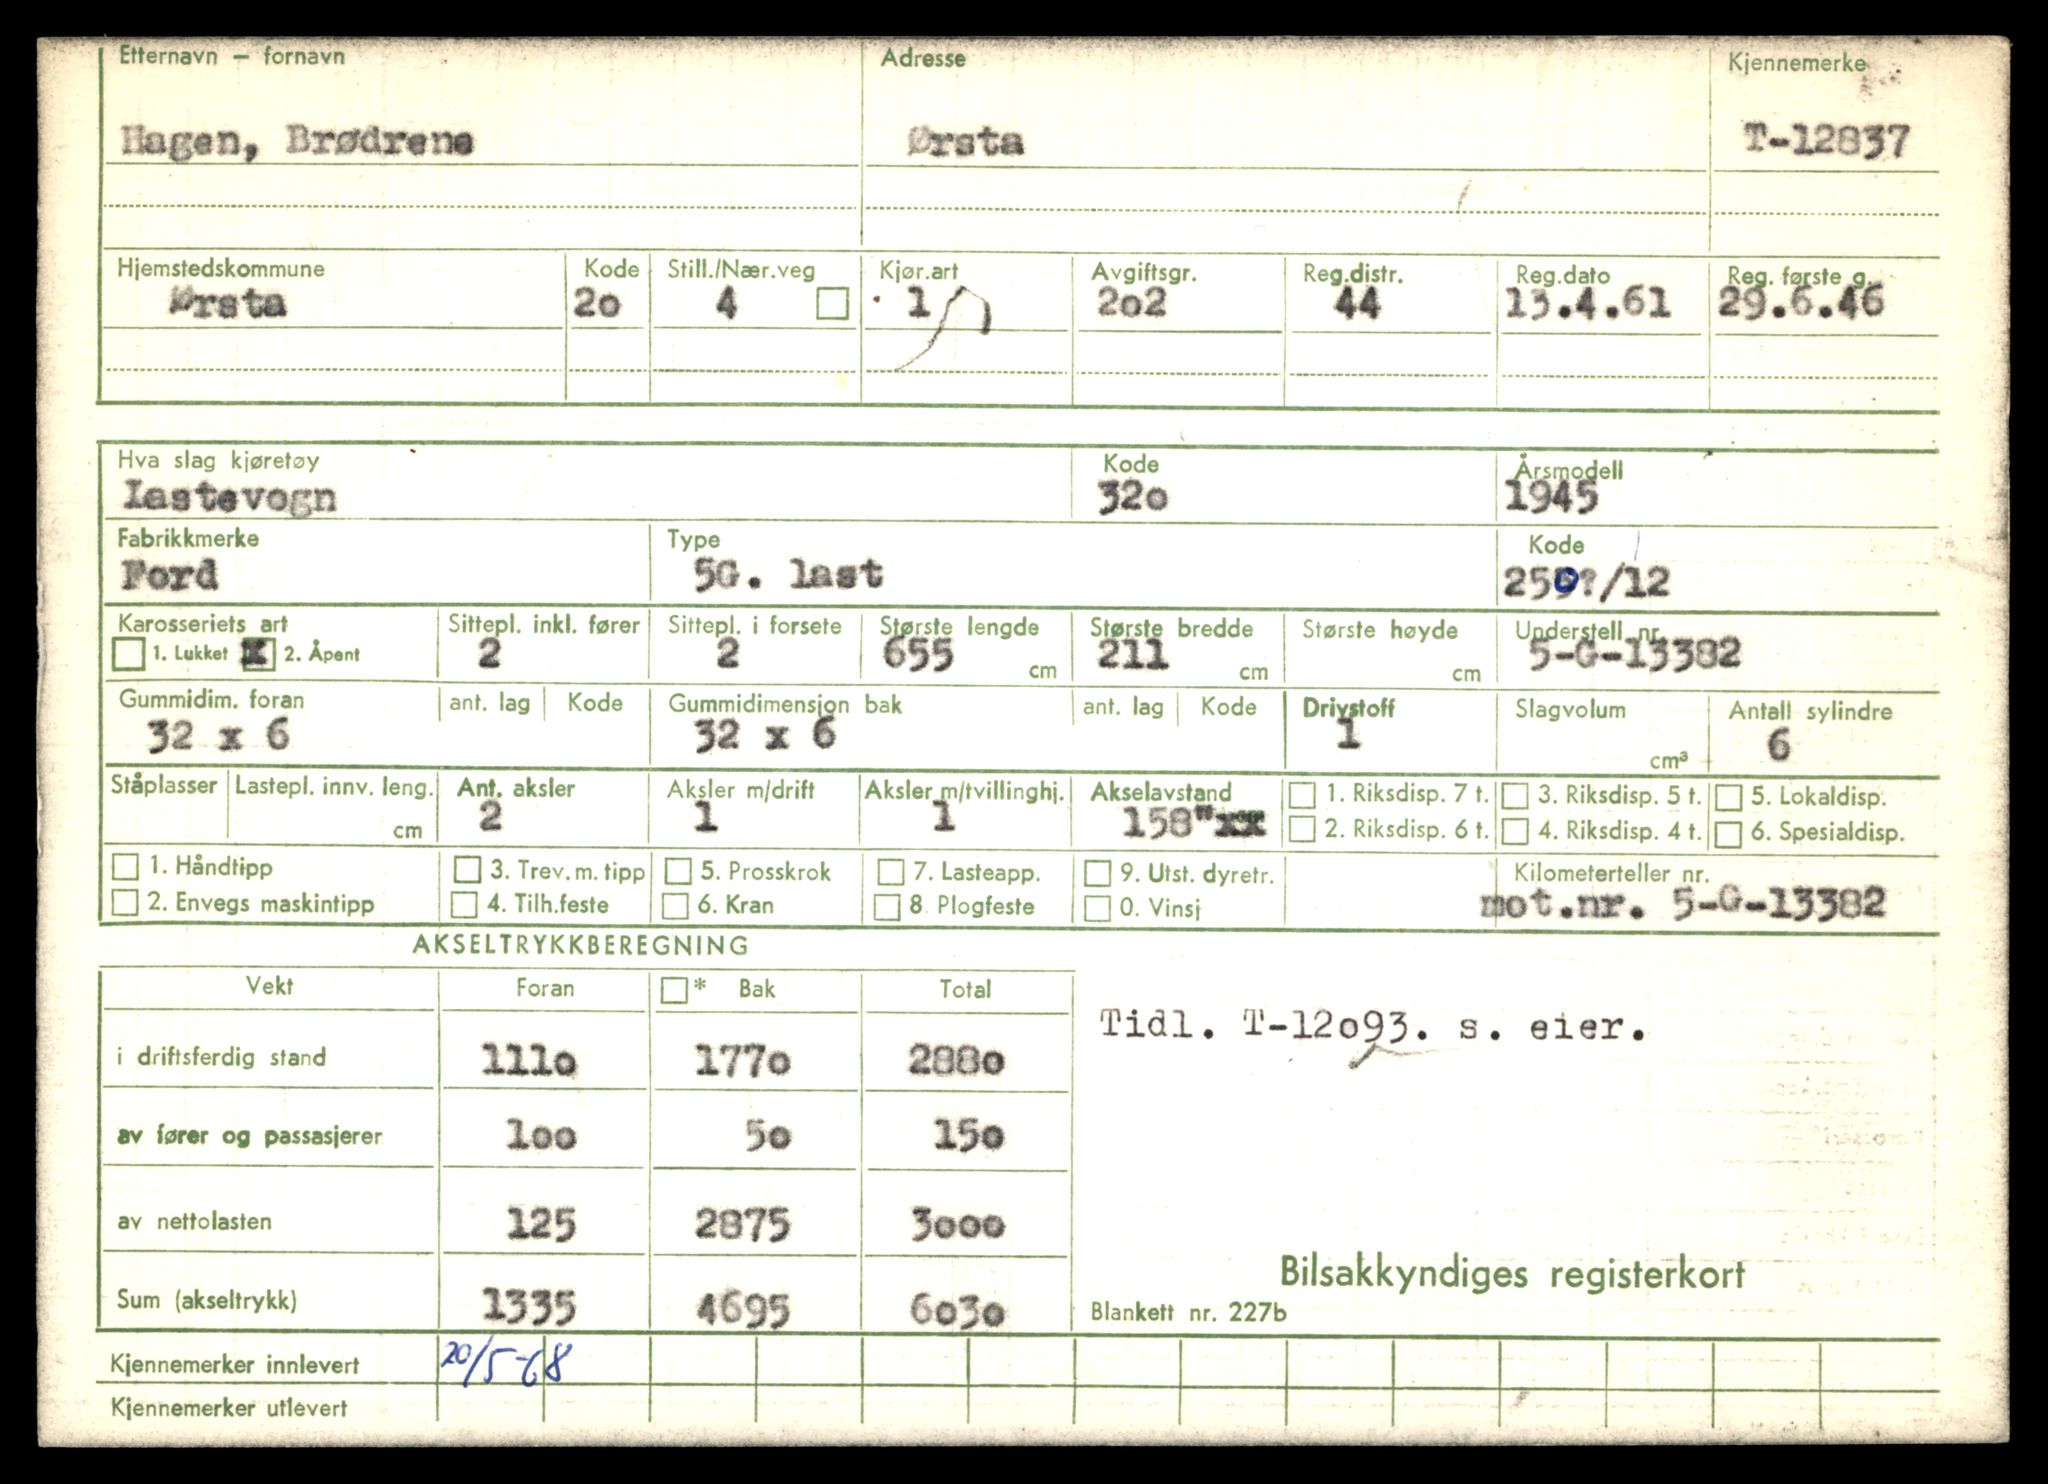 Etternavn — fornavn Adresse Kjennemerke
Hagen, Brødrene Ørsta T-12837
Hjemstedskommune Kode Still./Nær.veg Kjør.art Avgiftsgr. Reg.distr. Reg.dato Reg. første g.
Ørsta 2o 4 1 2o2 44 13.4.61 29.6.46
Hva slag kjøretøy Kode Årsmodell
Lastevogn 32o 1945
Fabrikkmerke Type Kode
Ford 5G. last 250?/12
Karosseriets art Sittepl. inkl. fører Sittepl. i forsete Største lengde Største bredde Største høyde Understell nr.
1. Lukket x 2. Åpent 2 2 655 cm 211 cm cm 5-G-13382
Gummidim. foran ant. lag Kode Gummidimensjon bak ant. lag Kode Drivstoff Slagvolum Antall sylindre
32 x 6 32 x 6 1 cm³ 6
Ståplasser Lastepl. innv. leng. Ant. aksler Aksler m/drift Aksler m/tvillinghj. Akselavstand 1. Riksdisp. 7 t. 3. Riksdisp. 5 t. 5. Lokaldisp.
cm 2 1 1 158"xx 2. Riksdisp. 6 t. 4. Riksdisp. 4 t. 6. Spesialdisp.
1. Håndtipp 3. Trev. m. tipp 5. Prosskrok 7. Lasteapp. 9. Utst. dyretr. Kilometerteller nr.
2. Envegs maskintipp 4. Tilh.feste 6. Kran 8. Plogfeste 0. Vinsj mot.nr. 5-G-13382
AKSELTRYKKBEREGNING
Vekt Foran * Bak Total
Tidl. T-12o93. s. eier.
i driftsferdig stand 111o 177o 288o
av fører og passasjerer 1oo 5o 15o
av nettolasten 125 2875 3ooo
Bilsakkyndiges registerkort
Sum (akseltrykk) 1335 4695 6o3o
Blankett nr. 227b
Kjennemerker innlevert 20/5-68
Kjennemerker utlevert